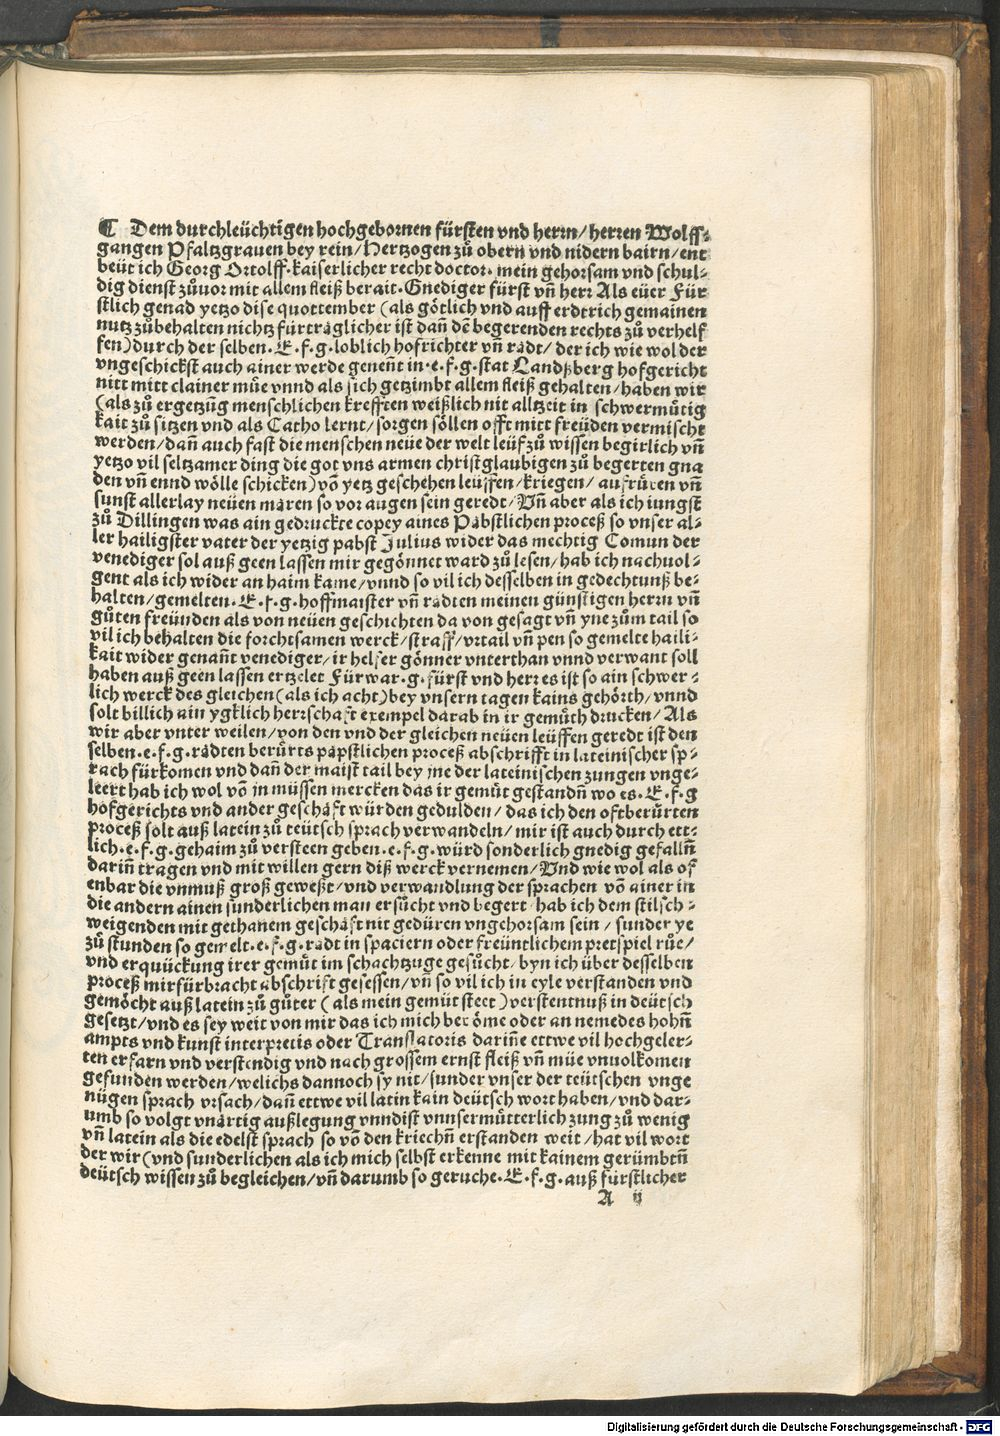 ¶ Dem durchleüchtigen hochgebornen fürsten vnd herrn/ herren Wolff-
gangen Pfaltzgrauen bey rein/ Hertzogen zů obern vnd nidern bairn/ ent
beüt ich Georg Ortolff. kaiserlicher recht doctor. mein gehorsam vnd schul-
dig dienst zůuor mit allem fleiß berait. Gnediger fürst vñ herr Als eüer Für
stlich genad yetzo dise quottember (als götlich vnd auff erdtrich gemainen
nutz zůbehalten nichtz fürträglicher ist dañ dẽ begerenden rechts zů verhelf
fen) durch der selben. E. f. g. loblich hofrichter vñ rädt/ der ich wie wol der
vngeschickst auch ainer werde geneñt in. e. f. g. stat Landßberg hofgericht
nitt mitt clainer müe vnnd als sich getzimbt allem fleiß gehalten/ haben wir
(als zů ergetzũg menschlichen krefften weißlich nit alltzeit in schwermůtig
kait zů sitzen vnd als Catho lernt/ sorgen söllen offt mitt freüden vermischt
werden/ dañ auch fast die menschen neüe der welt leüf zů wissen begirlich vñ
yetzo vil seltzamer ding die got vns armen christglaubigen zů begerten gna
den vñ ennd wölle schicken) võ yetz geschehen leüffen/ kriegen/ aufrůren vñ
sunst allerlay neüen mären so vor augen sein geredt/ Vñ aber als ich iungst
zů Dillingen was ain gedruckte copey aines Päbstlichen proceß so vnser al-
ler hailigster vater der yetzig pabst Julius wider das mechtig Comun der
venediger sol auß geen lassen mir gegönnet ward zů lesen/ hab ich nachuol-
gent als ich wider an haim kame/ vnnd so vil ich desselben in gedechtunß be-
halten/ gemelten. E. f. g. hoffmaister vñ rädten meinen günstigen herrn vñ
gůten freünden als von neüen geschichten da von gesagt vñ yne zům tail so
vil ich behalten die forchtsamen werck/ straff/ vrtail vñ pen so gemelte haili-
kait wider genañt venediger/ ir helfer gönner vnterthan vnnd verwant soll
haben auß geen lassen ertzelet Fürwar. g. fürst vnd herr es ist so ain schwer-
lich werck des gleichen (als ich acht) bey vnsern tagen kains gehörth/ vnnd
solt billich ain ygklich herrschaft exempel darab in ir gemüth drucken/ Als
wir aber vnter weilen/ von den vnd der gleichen neüen leüffen geredt ist den
selben. e. f. g. rädten berůrts päpstlichen proceß abschrifft in lateinischer sp-
rach fürkomen vnd dañ der maist tail bey jne der lateinischen zungen vnge-
leert hab ich wol võ jn müssen mercken das ir gemüt gestandñ wo es. E. f. g
hofgerichts vnd ander geschäft würden gedulden/ das ich den oftberürten
proceß solt auß latein zů teütsch sprach verwandeln/ mir ist auch durch ett-
lich. e. f. g. gehaim zů versteen geben. e. f. g. würd sonderlich gnedig gefallñ
dariñ tragen vnd mit willen gern diß werck vernemen/ Vnd wie wol als of
enbar die vnmuß groß geweßt/ vnd verwandlung der sprachen võ ainer in
die andern ainen sunderlichen man ersůcht vnd begert hab ich dem stilsch-
weigenden mit gethanem geschäft nit gedüren vngehorsam sein/ sunder ye
zů stunden so gemelt. e. f. g. rädt in spaciern oder freüntlichem pretspiel růe/
vnd erquückung irer gemüt im schachtzuge gesůcht/ byn ich über desselben
proceß mir fürbracht abschrift gesessen/ vñ so vil ich in eyle verstanden vnd
gemöcht auß latein zů gůter (als mein gemüt steet) verstentnuß in deütsch
gesetzt/ vnd es sey weit von mir das ich mich beröme oder an nemedes hohñ
ampts vnd kunst interpretis oder Translatoris dariñe ettwe vil hochgeler-
ten erfarn vnd verstendig vnd nach grossem ernst fleiß vñ müe vnuolkomen
gefunden werden/ welichs dannoch sy nit/ sunder vnser der teütschen vnge
nügen sprach vrsach/ dañ ettwe vil latein kain deütsch wort haben/ vnd dar-
umb so volgt vnärtig außlegung vnndist vnnser mütterlich zung zů wenig
vñ latein als die edelst sprach so võ den kriechñ erstanden weit/ hat vil wort
der wir (vnd sunderlichen als ich mich selbst erkenne mit kainem gerümbtñ
deütsch wissen zů begleichen/ vñ darumb so geruche. E. f. g. auß fürstlicher
A ij
Digitalisierung gefördert durch die Deutsche Forschungsgemeinschaft - DFG